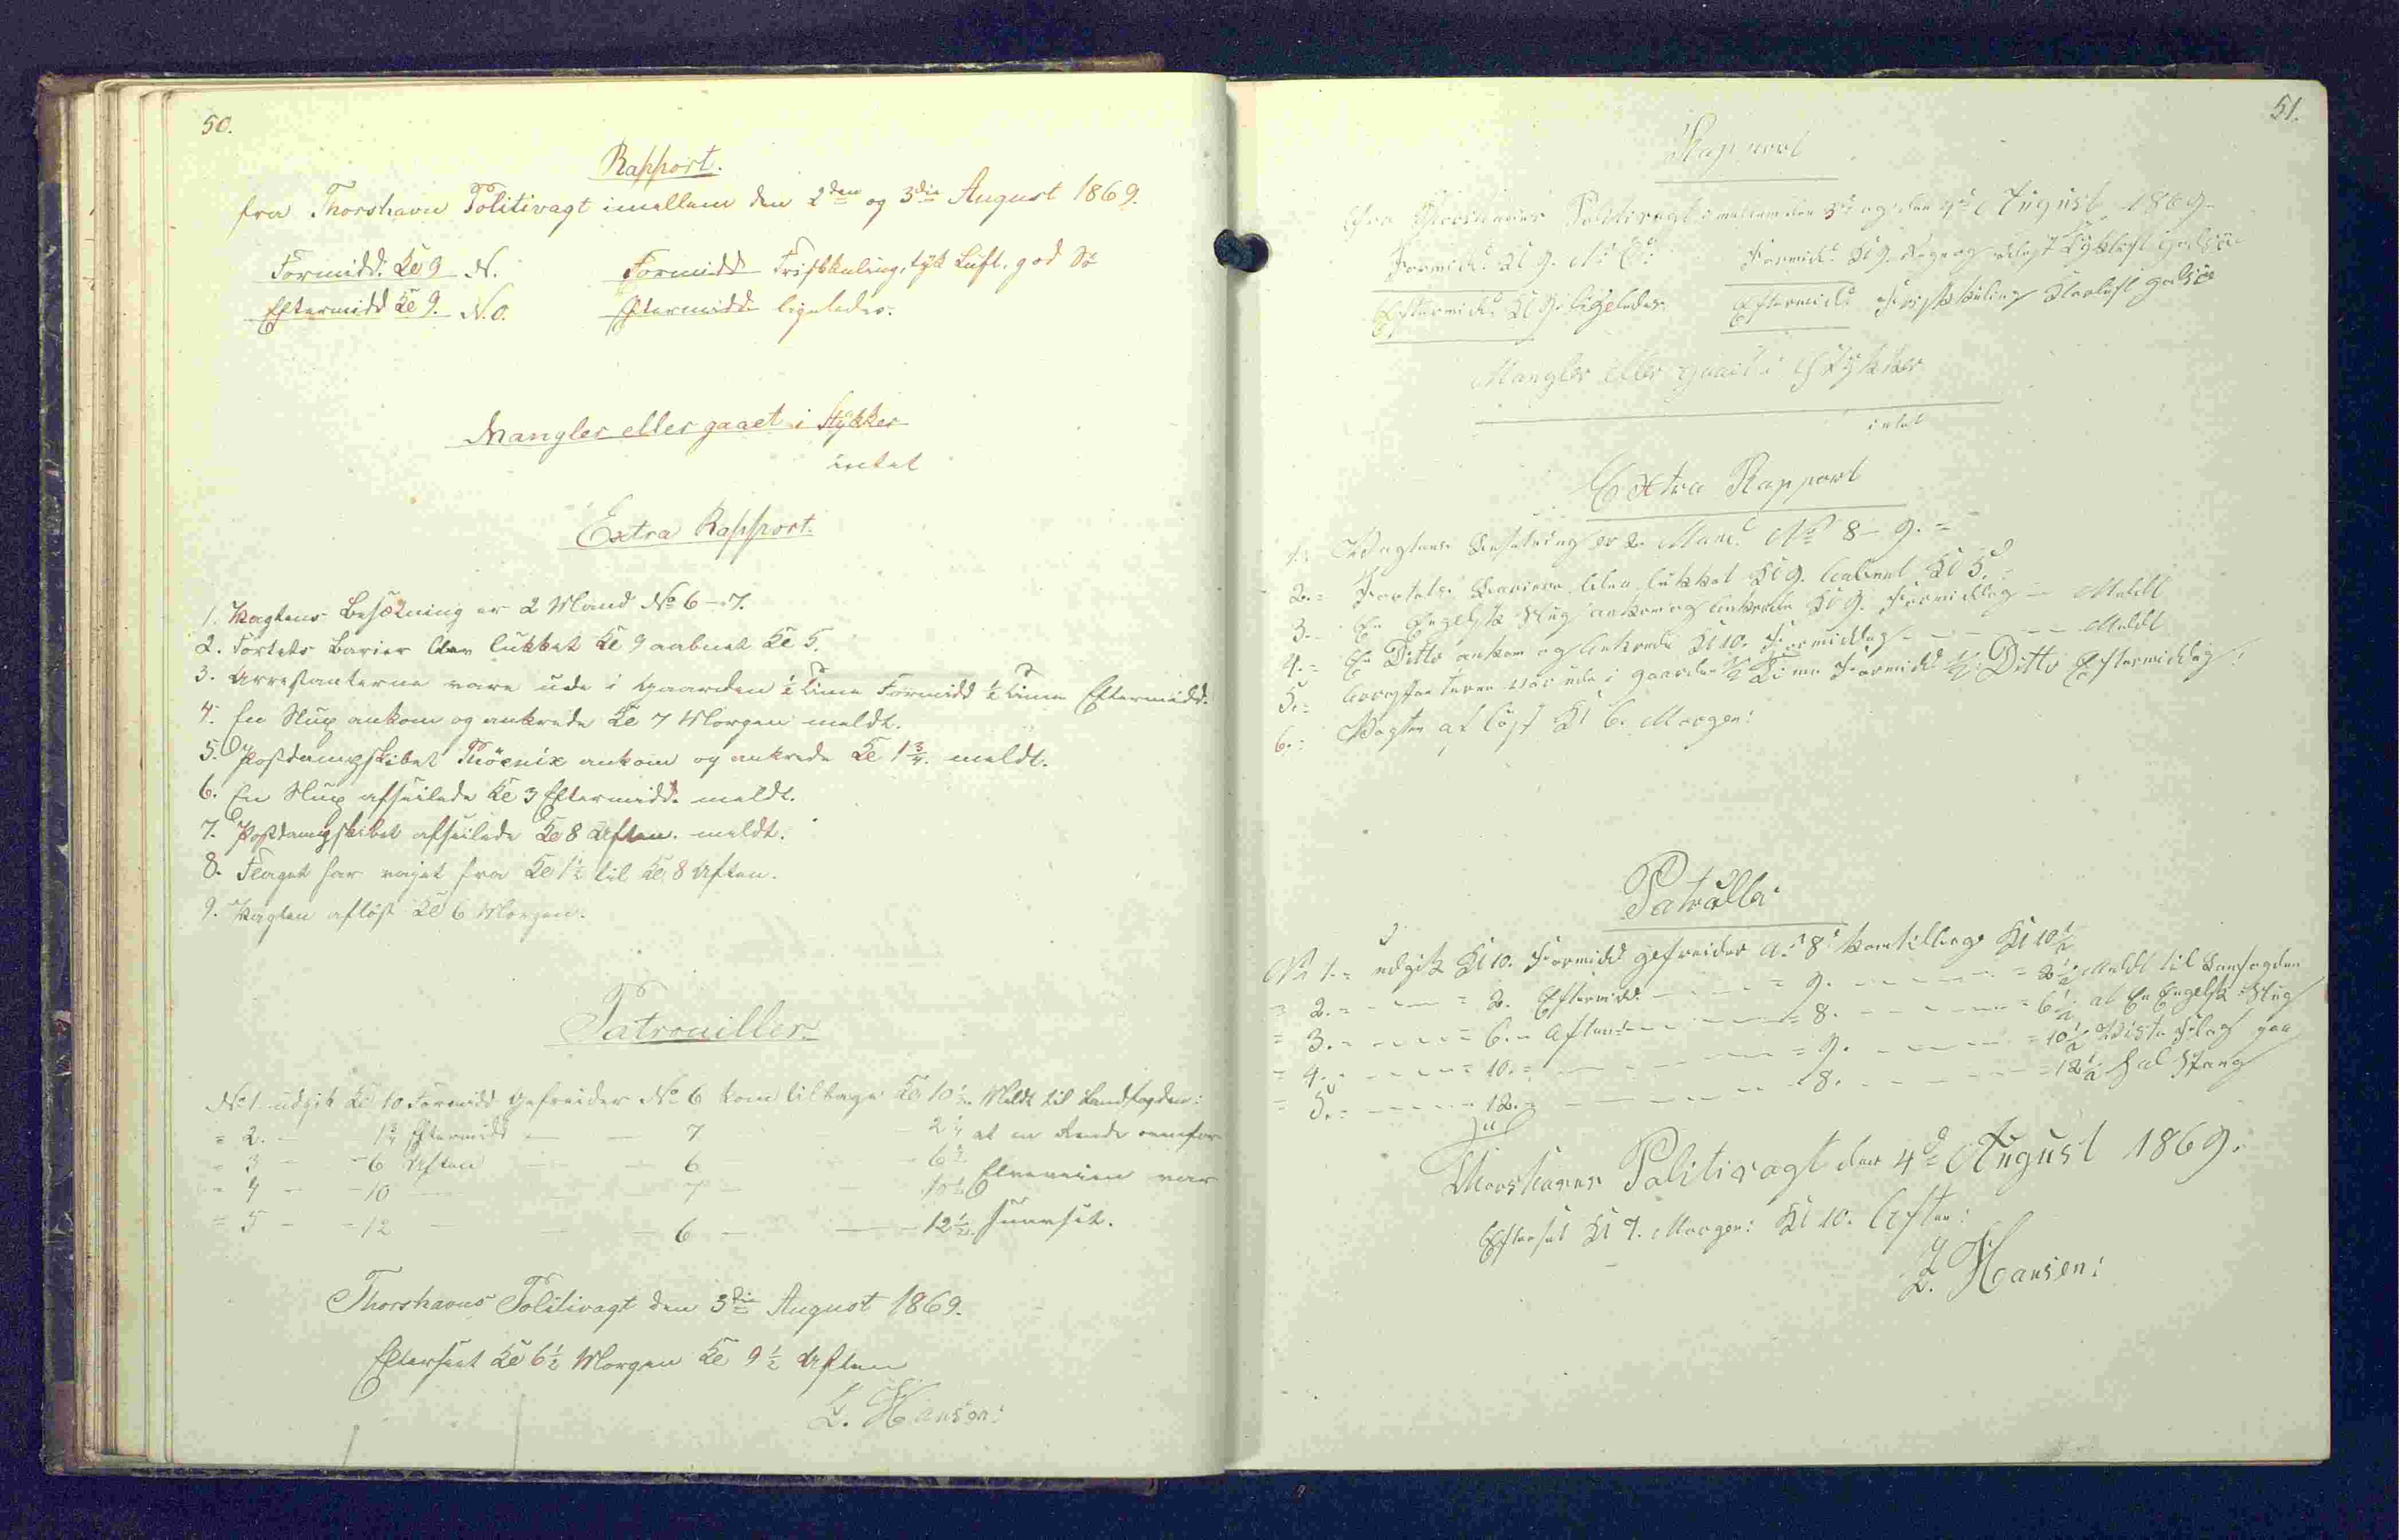 50.
Rapport.
fra Thorshavn Politivagt imellem den 2den og 3die August 1869.
Formidd. Kl 9 N. Formidd Friskkuling, tyk Luft, god Sø
Eftermidd Kl 9. N.O. Eftermidd ligeledes.
Mangler eller gaaet i Stykker
intet
Extra Rapport.
1. Vagtens Besætning er 2 Mand No 6-7.
2. Fortets Barier blev lukket Kl 9 aabnet Kl 5.
3. Arrestanterne vare ude i Gaarden ½ Time Formidd ½ Time Eftermidd.
4. En Slup ankom og ankrede Kl 7 Morgen meldt.
5. Postdampskibet Phöenix ankom og ankrede Kl 1¾. meldt.
6. En Slup afseilede Kl 3 Eftermidd. meldt.
7. Postdampskibet afseilede Kl 8 Aften. meldt.
8. Flaget har vajet fra Kl 1½ til Kl 8 Aften.
9. Vagten afløst Kl 6 Morgen.
Patrouiller.
No 1 udgik Kl 10 Formidd Gefreider No 6 kom tilbage Kl 10½. Meldt til Landfogden:
= 2. - 1¾ Eftermidd - - 7 - 2¼ at en Rende ovenfor
= 3 - - 6 Aften - - 6 - 6½ Elveveien var
= 4 - - 10 - - 7 - 10½
= 5 - - 12 - - 6 - 12½.
Thorshavns Politivagt den 3die August 1869.
Efterseet Kl 6½ Morgen Kl 9½ Aften
L. Hansen:
51.
Rapport
fra Thorshavns Politivagt imellem den 3die og den 4de August 1869.
Formidd Kl 9. N: O: Formidd Kl 9. Tykluft godsøe
Eftermidd Kl 9. ligeledes. Eftermidd Friskkuling Klarluft godsøe
Mangler eller gaaet i Stykker
intet
Extra Rapport
1. Vagtens Besætning er 2. Mand No 8-9. =
2. = Fortets Bariere blev lukket Kl 9. aabnet Kl 5.
3. - En Engelsk Slup ankom og ankrede Kl 9. Formiddag - Meldt
4. = En Ditto ankom og ankrede Kl 10. Formiddag - - - - Meldt
5. = Arrestanterne var ude i gaarden ½ Time Formidd ½: Ditto Eftermiddag:
6. = Vagten afløst Kl 6. Morgen:
Patrulla:
No 1. = udgik Kl 10. Formidd gefreider No 8: kom tilbage Kl 10½
= 2. = - - = 2. Eftermidd. - - = 9. - - = 2½. Meldt til Landfogden
= 3. = - - = 6. = Aften - - = 8. - - = 6½. at En Engelsk Slup
= 4. - - = 10. = - - = 9. - - = 10½ Viste Flag paa
= 5. = - - - 12. = - - - 8. - - = 12½ hal Stang
Thorshavns Politivagt den 4de August 1869.
Efterset Kl 7. Morgen: Kl 10. Aften:
L. Hansen: